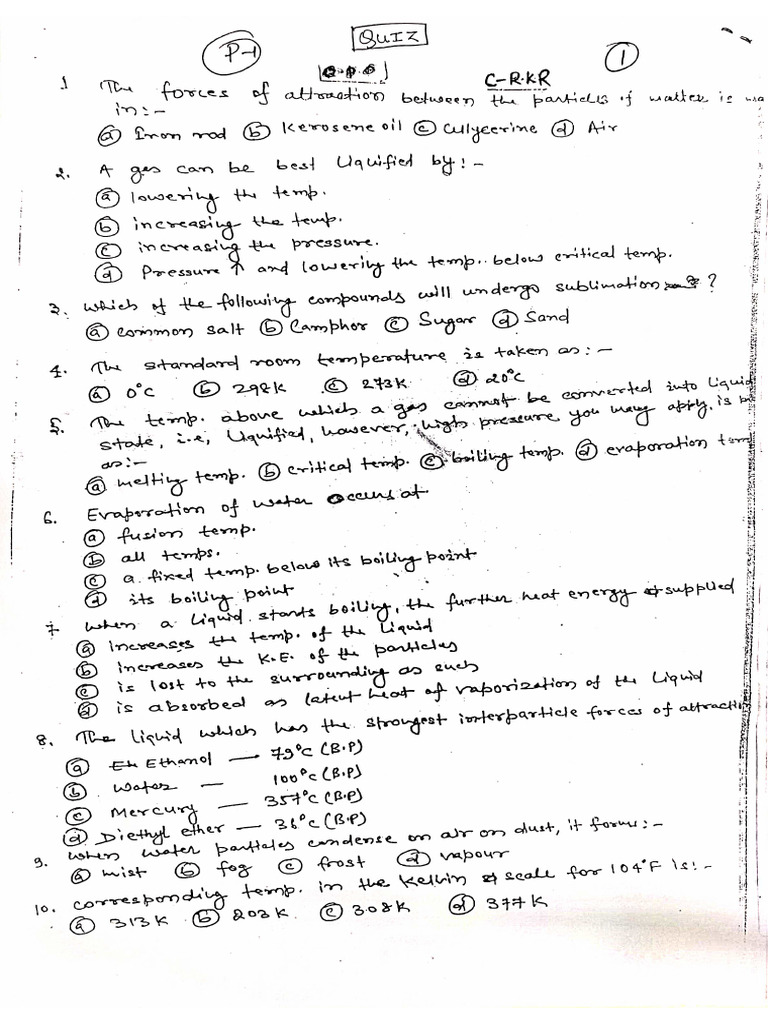 P-1
QUIZ
1
C-R.K.R
1 The forces of attraction between the particles of matter is
in:-
(a) Iron rod (b) Kerosene oil (c) Gulycerine (d) Air
2. A gas can be best Liquified by:-
(a) lowering the temp.
(b) increasing the temp.
(c) increasing the pressure.
(d) Pressure ↑ and lowering the temp. below critical temp.
3. Which of the following compounds will undergo sublimation ?
(a) common salt (b) Camphor (c) Sugar (d) Sand
4. The standard room temperature is taken as:-
(a) 0°C (b) 298K (c) 273K (d) 20°C
5. The temp. above which a gas cannot be converted into Liquid
state, i.e, Liquified, however, high pressure you may apply. is
as:-
(a) melting temp. (b) critical temp. (c) boiling temp. (d) evaporation tem
6. Evaporation of water occurs at
(a) fusion temp.
(b) all temps.
(c) a fixed temp. below its boiling point
(d) its boiling point
7 When a liquid starts boiling, the further heat energy supplied
(a) Increases the temp. of the Liquid
(b) increases the K.E. of the particles
(c) is lost to the surrounding as such
(d) is absorbed as latent heat of vaporization of the Liquid
8. The liquid which has the strongest interparticle forces of attracti
(a) Ethanol — 79°C (B.P)
(b) Water — 100°C (B.P)
(c) Mercury — 357°C (B.P)
(d) Diethyl ether — 36°C (B.P)
9. When water particles condense on air on dust, it forms:-
(a) mist (b) fog (c) frost (d) vapour
10. Corresponding temp. in the Kelvin scale for 104°F is:-
(a) 313K (b) 203K (c) 308K (d) 377K